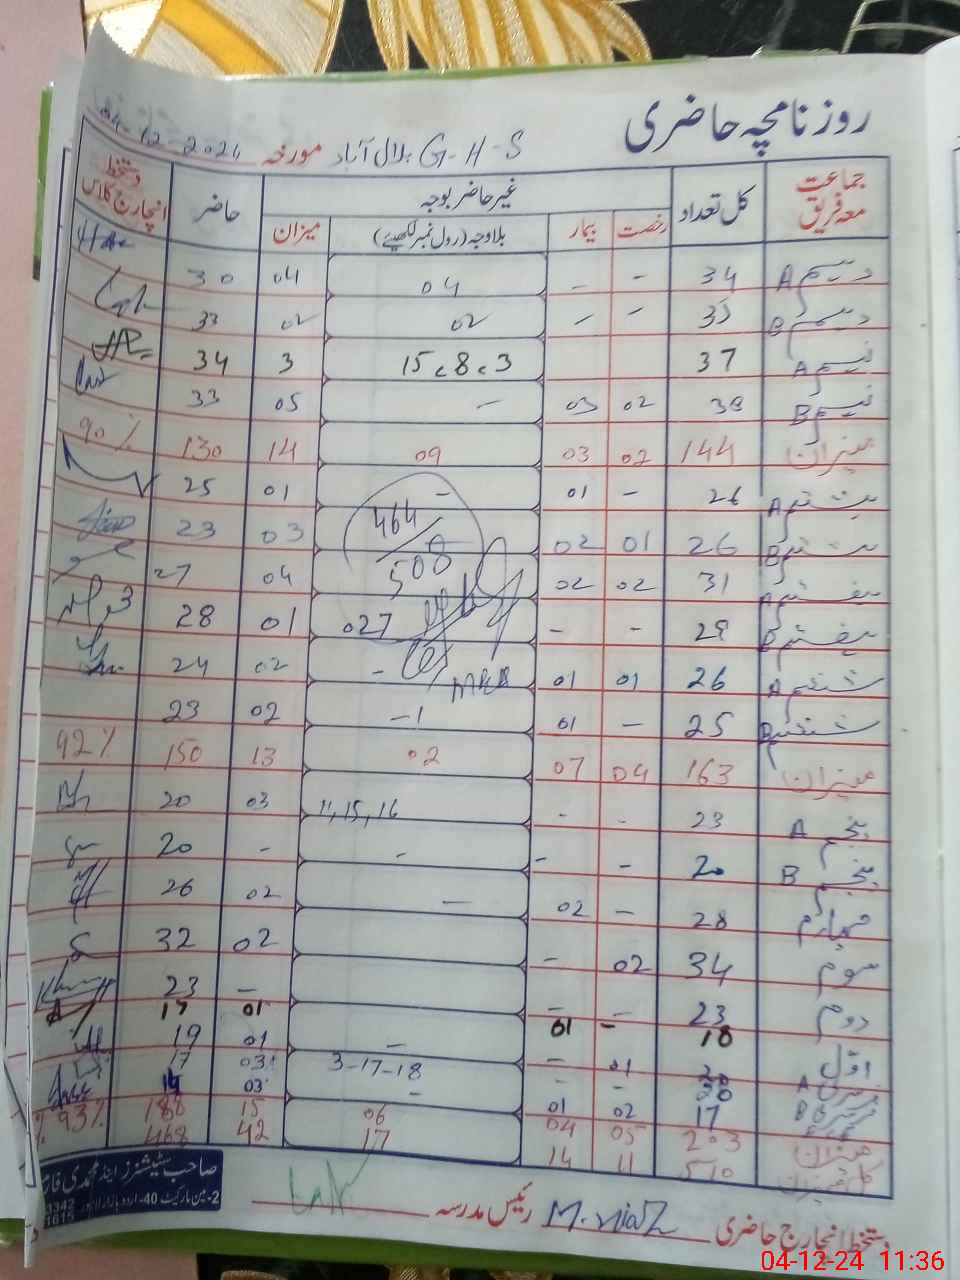 روزنامچہ حاضری
G-H-S ہلال آباد مورخہ 04-12-2024
جماعت معہ فریق کل تعداد غیر حاضر بوجہ حاضر دستخط انچارج کلاس
رخصت بیمار بلاوجہ (رول نمبر لکھیئے) میزان
دہم A 34 - - 04 04 30
دہم B 35 - - 02 02 33
نہم A 37 15,8,3 3 34
نہم B 38 02 03 - 05 33
میزان 144 02 03 09 14 130 90%
ہشتم A 26 - 01 - 01 25
ہشتم B 26 01 02 03 23
464/508
ہفتم A 31 02 02 04 27
ہفتم B 29 - - 027 01 28
ششم A 26 01 01 - 02 24
ششم B 25 - 01 -1 02 23
میزان 163 04 07 02 13 150 92%
پنجم A 23 - - 11,15,16 03 20
پنجم B 20 - - - - 20
چہارم 28 - 02 - 02 26
سوم 34 02 - 02 32
دوم 23 - - - 23
18 - 01 01 17
اوّل 20 01 - - 01 19
نرسری A 20 - - 3-17-18 03 17
نرسری B 17 02 01 - 03 14
میزان 203 05 04 06 15 188 93%
کل میزان 510 11 14 17 42 468
دستخط انچارج حاضری M. Niaz رئیس مدرسہ
صاحب سٹیشنرز اینڈ محمدی
2-مین مارکیٹ 40-اردو بازار لاہور
04-12-24 11:36